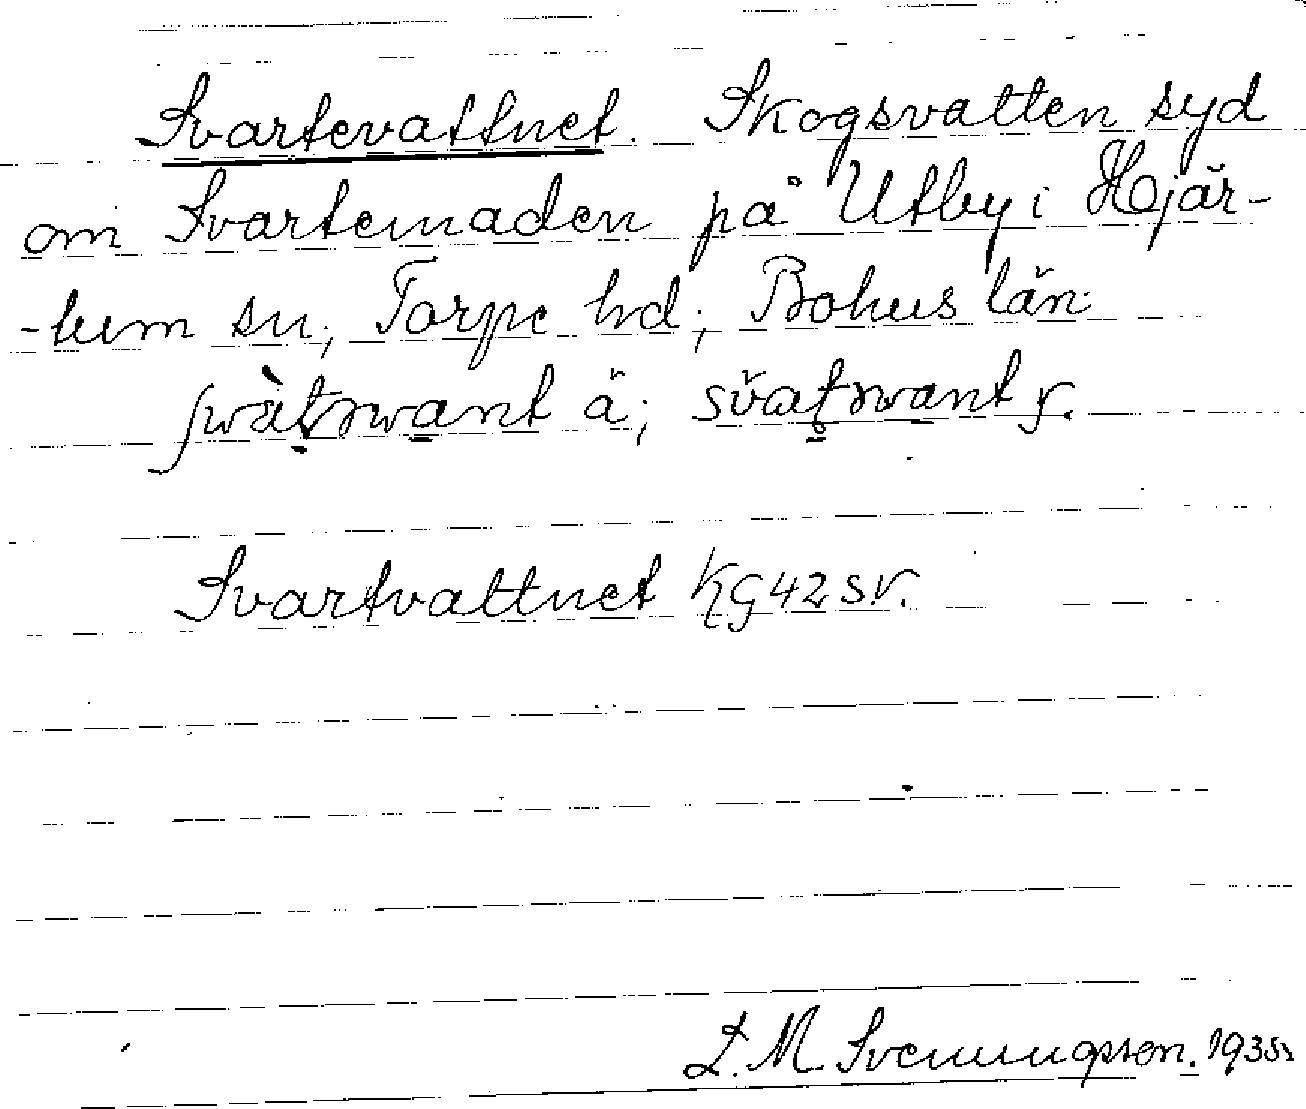 Svartevattnet. Skogsvatten syd
om Svartemaden på Utby i Hjär-
-tum sn; Torpe hd; Bohus län
ä; y.
Svartvattnet KG 42 SV.
L. M. Svenungsson. 1935.